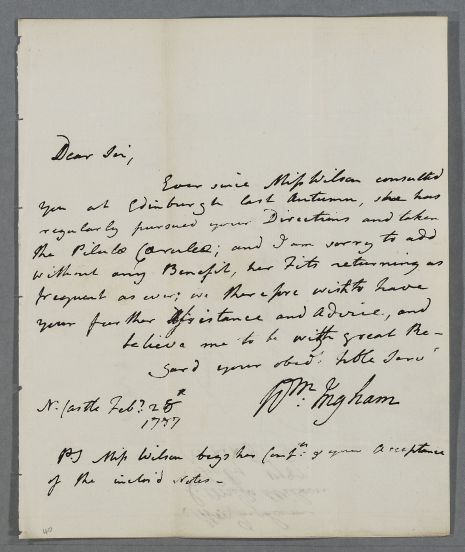 Dear Sir,
Ever since Miss Wilson consulted
you at Edinburgh last Autumn, she has
regularly pursued your Directions and taken
the Pilulæ Cæruleæ; and I am sorry to add
without any Benefit, her Fits returning as
frequent as ever; we therefore wish to have
your further Assistance and Advice, and
believe me to be with great Re-
gard your obed.t hble Serv.t
Wm: Ingham
N:Castle Feb.y 28
1777
PS Miss Wilson begs her Comp.ts & your Acceptance
of the inclos'd Notes -
40